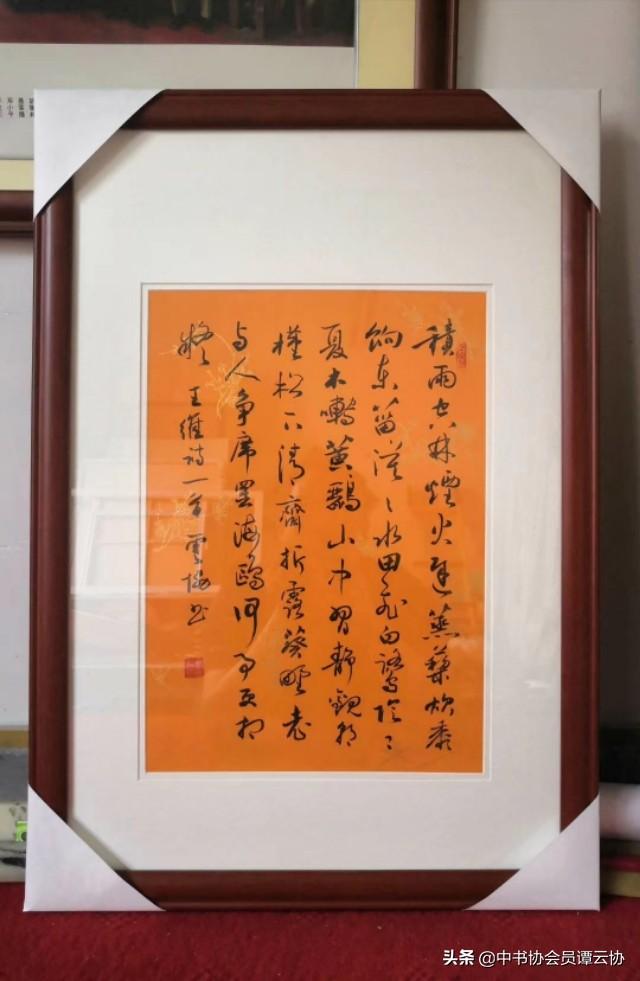 積雨空林煙火遲蒸藜炊黍
餉東菑漠〻水田飛白鷺陰〻
夏木囀黄鸝山中習靜觀朝
槿松下清齋折露葵野老
与人争席罷海鷗何事更相
疑 王維詩一首雲協书
头条 @中书协会员谭云协